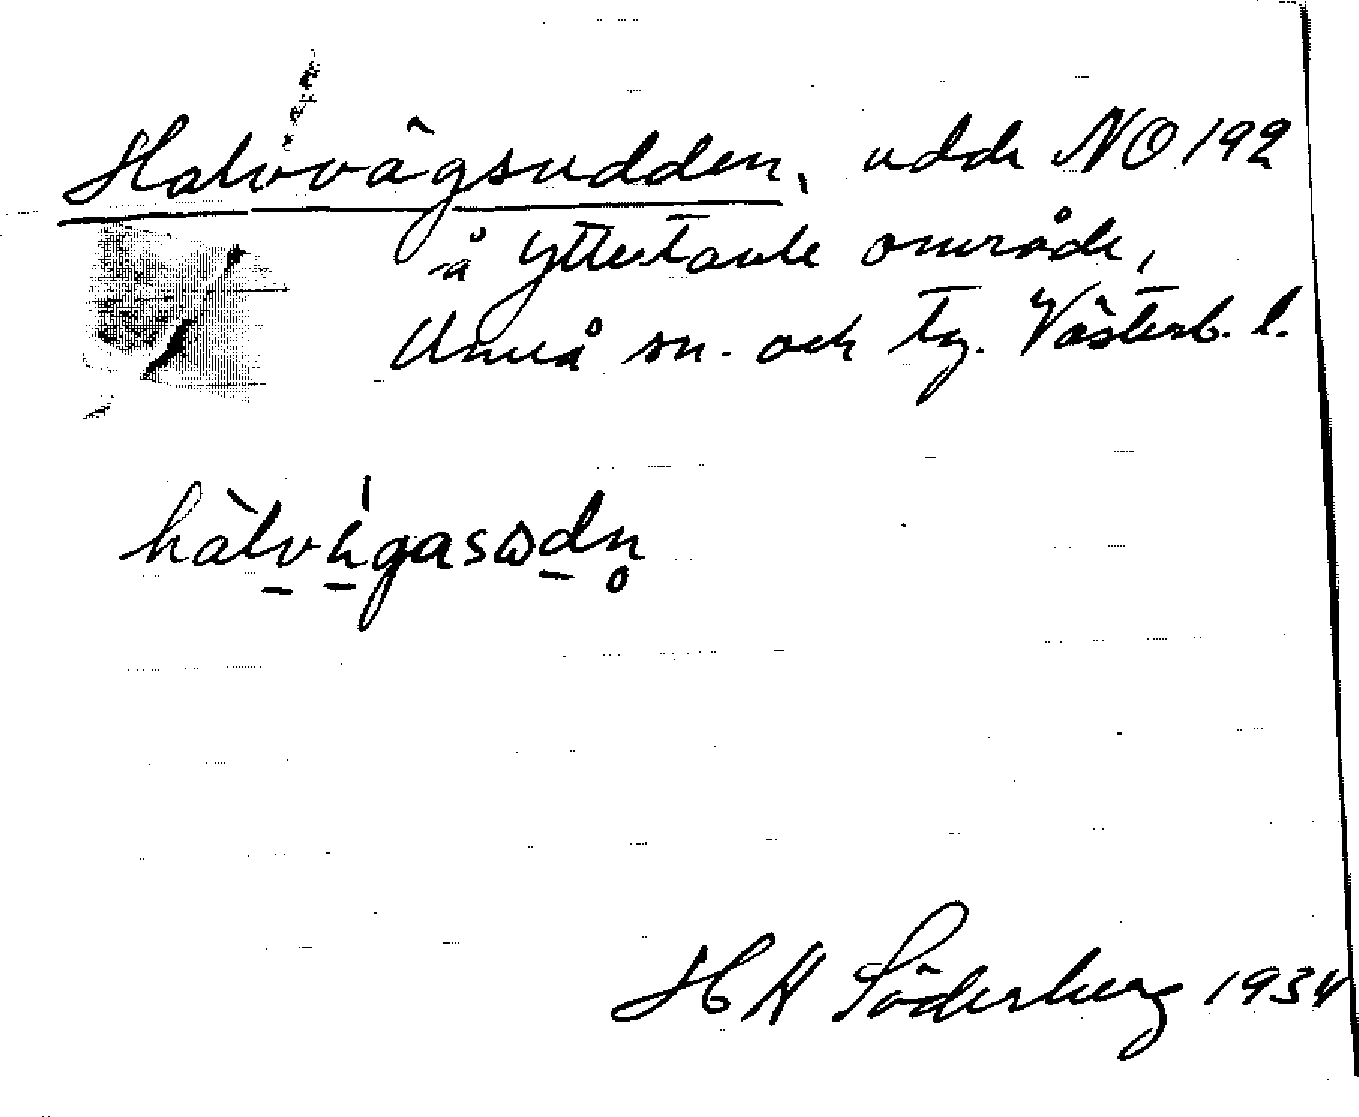 Halvvägsudden, udde NO 192
å Yttertavle område,
Umeå sn. och tg. Västerb. l.
H H Söderberg 1934